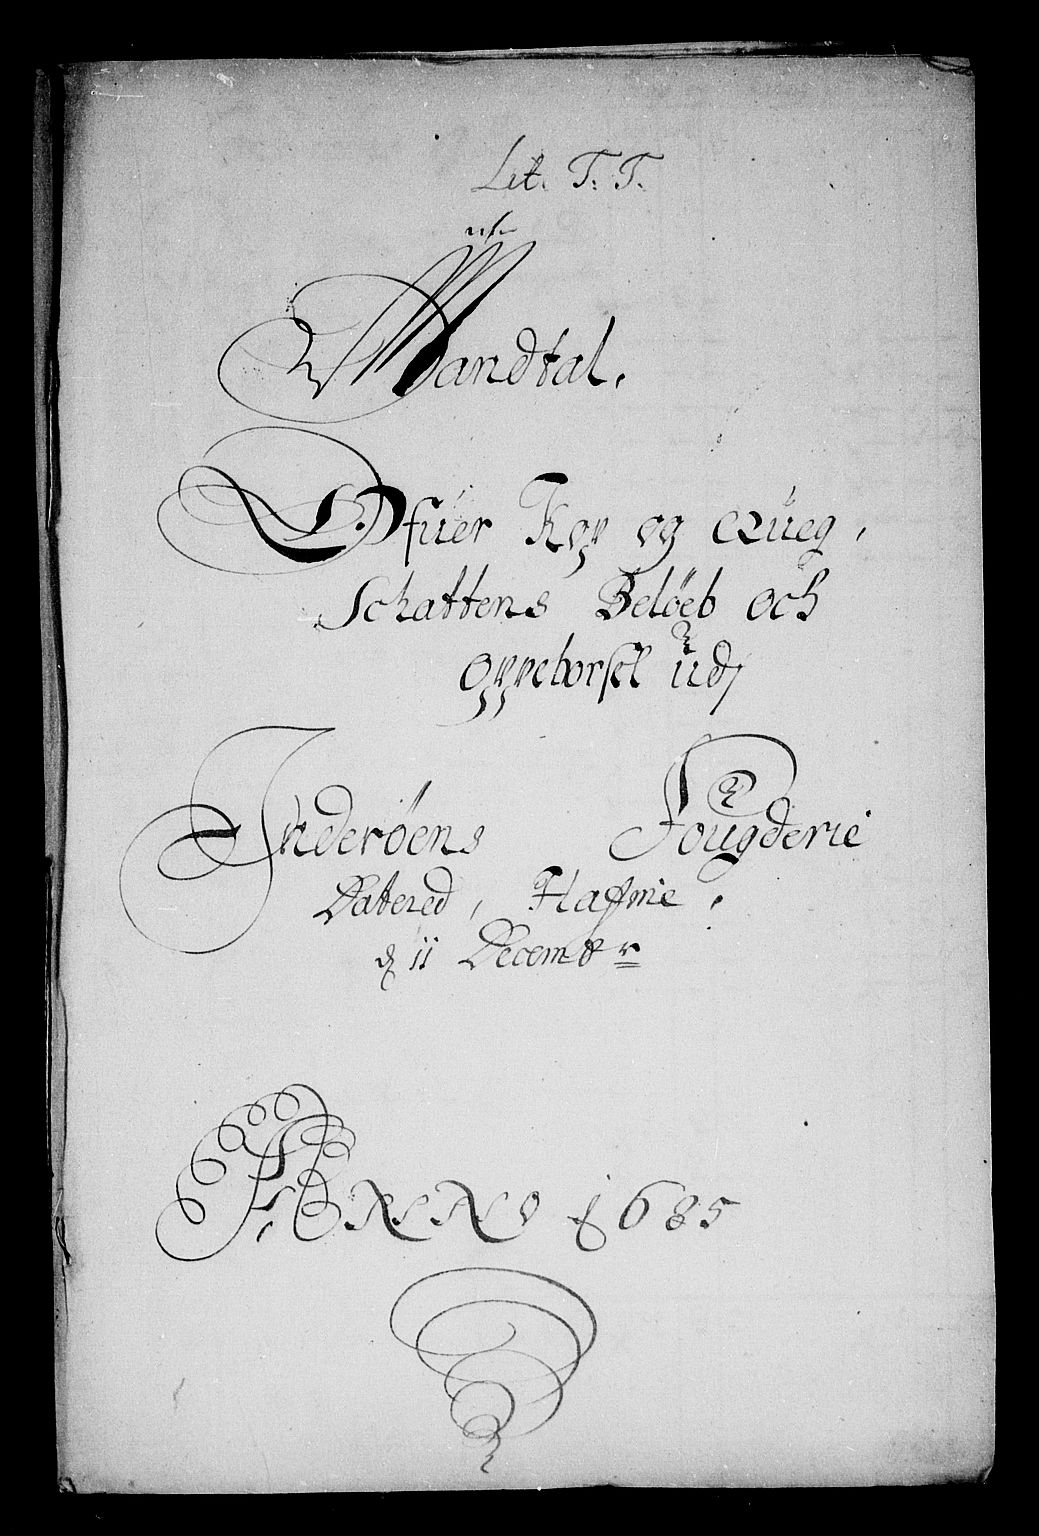 Lit. T: T.
Mandtal.
Offuer Kop og Queg,
Schattens Beløeb och
Oppeborsel udj
Inderøens Fougderie
Datered, Haffnie.
d 11 Decembr
ANNO 1685